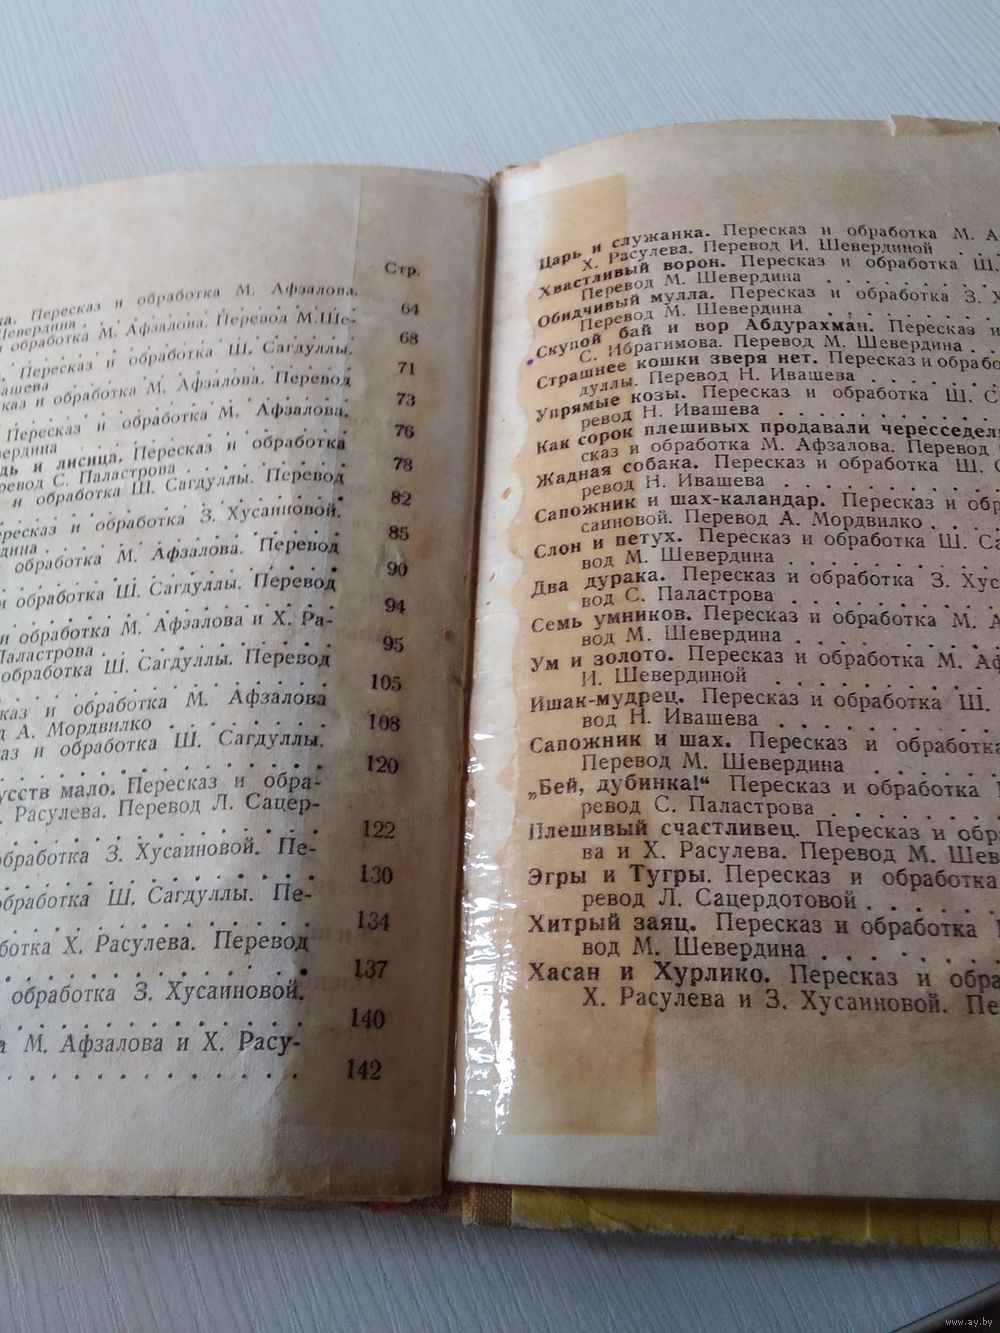 Стр.
ка. Пересказ и обработка М. Афзалова.
Шевердина . . . . . . . . . . . . 64
и обработка М. Афзалова. Перевод М.Ше-
. . . . . . . . . . . . 68
. Пересказ и обработка Ш. Сагдуллы.
Ивашева . . . . . . . . . . . . 71
сказ и обработка М. Афзалова. Перевод
. . . . . . . . . . . . 73
Пересказ и обработка М. Афзалова.
вердина . . . . . . . . . . . . 76
дь и лисица. Пересказ и обработка
ревод С. Паластрова . . . . . . . . 78
и обработка Ш. Сагдуллы. Перевод
. . . . . . . . . . . . 82
ересказ и обработка З. Хусаиновой.
дина . . . . . . . . . . . . 85
обработка М. Афзалова. Перевод
. . . . . . . . . . . . 90
и обработка Ш. Сагдуллы. Перевод
. . . . . . . . . . . . 94
и обработка М. Афзалова и Х. Ра-
Паластрова . . . . . . . . . . 95
обработка Ш. Сагдуллы. Перевод
. . . . . . . . . . . . 105
каз и обработка М. Афзалова
д А. Мордвилко . . . . . . . . 108
аз и обработка Ш. Сагдуллы.
. . . . . . . . . . . . 120
усств мало. Пересказ и обра-
. Расулева. Перевод Л. Сацер-
. . . . . . . . . . . . 122
обработка З. Хусаиновой. Пе-
. . . . . . . . . . . . 130
обработка Ш. Сагдуллы. Пе-
. . . . . . . . . . . . 134
ботка Х. Расулева. Перевод
. . . . . . . . . . . . 137
обработка З. Хусаиновой.
. . . . . . . . . . . . 140
а М. Афзалова и Х. Расу-
. . . . . . . . . . . . 142
Царь и служанка. Пересказ и обработка М. А
Х. Расулева. Перевод И. Шевердиной . .
Хвастливый ворон. Пересказ и обработка Ш.
Перевод М. Шевердина . . . . . . . .
Обидчивый мулла. Пересказ и обработка З. Х
Перевод М. Шевердина . . . . . . . .
Скупой бай и вор Абдурахман. Пересказ и
С. Ибрагимова. Перевод М. Шевердина . .
Страшнее кошки зверя нет. Пересказ и обрабо
дуллы. Перевод Н. Ивашева . . . . . .
Упрямые козы. Пересказ и обработка Ш. С
ревод Н. Ивашева . . . . . . . . .
Как сорок плешивых продавали чересседель
сказ и обработка М. Афзалова. Перевод
Жадная собака. Пересказ и обработка Ш. С
ревод Н. Ивашева . . . . . . . . .
Сапожник и шах-каландар. Пересказ и обр
саиновой. Перевод А. Мордвилко . . .
Слон и петух. Пересказ и обработка Ш. Са
вод М. Шевердина . . . . . . . . .
Два дурака. Пересказ и обработка З. Хус
вод С. Паластрова . . . . . . . . .
Семь умников. Пересказ и обработка М. А
вод М. Шевердина . . . . . . . . .
Ум и золото. Пересказ и обработка М. Аф
И. Шевердиной . . . . . . . . .
Ишак-мудрец. Пересказ и обработка Ш.
вод Н. Ивашева . . . . . . . . .
Сапожник и шах. Пересказ и обработка
Перевод М. Шевердина . . . . . .
„Бей, дубинка!“ Пересказ и обработка
ревод С. Паластрова . . . . . . .
Плешивый счастливец. Пересказ и обр
ва и Х. Расулева. Перевод М. Шев
Эгры и Тугры. Пересказ и обработка
ревод Л. Сацердотовой . . . . . .
Хитрый заяц. Пересказ и обработка
вод М. Шевердина . . . . . . . .
Хасан и Хурлико. Пересказ и обра
Х. Расулева и З. Хусаиновой. Пе
www.ay.by